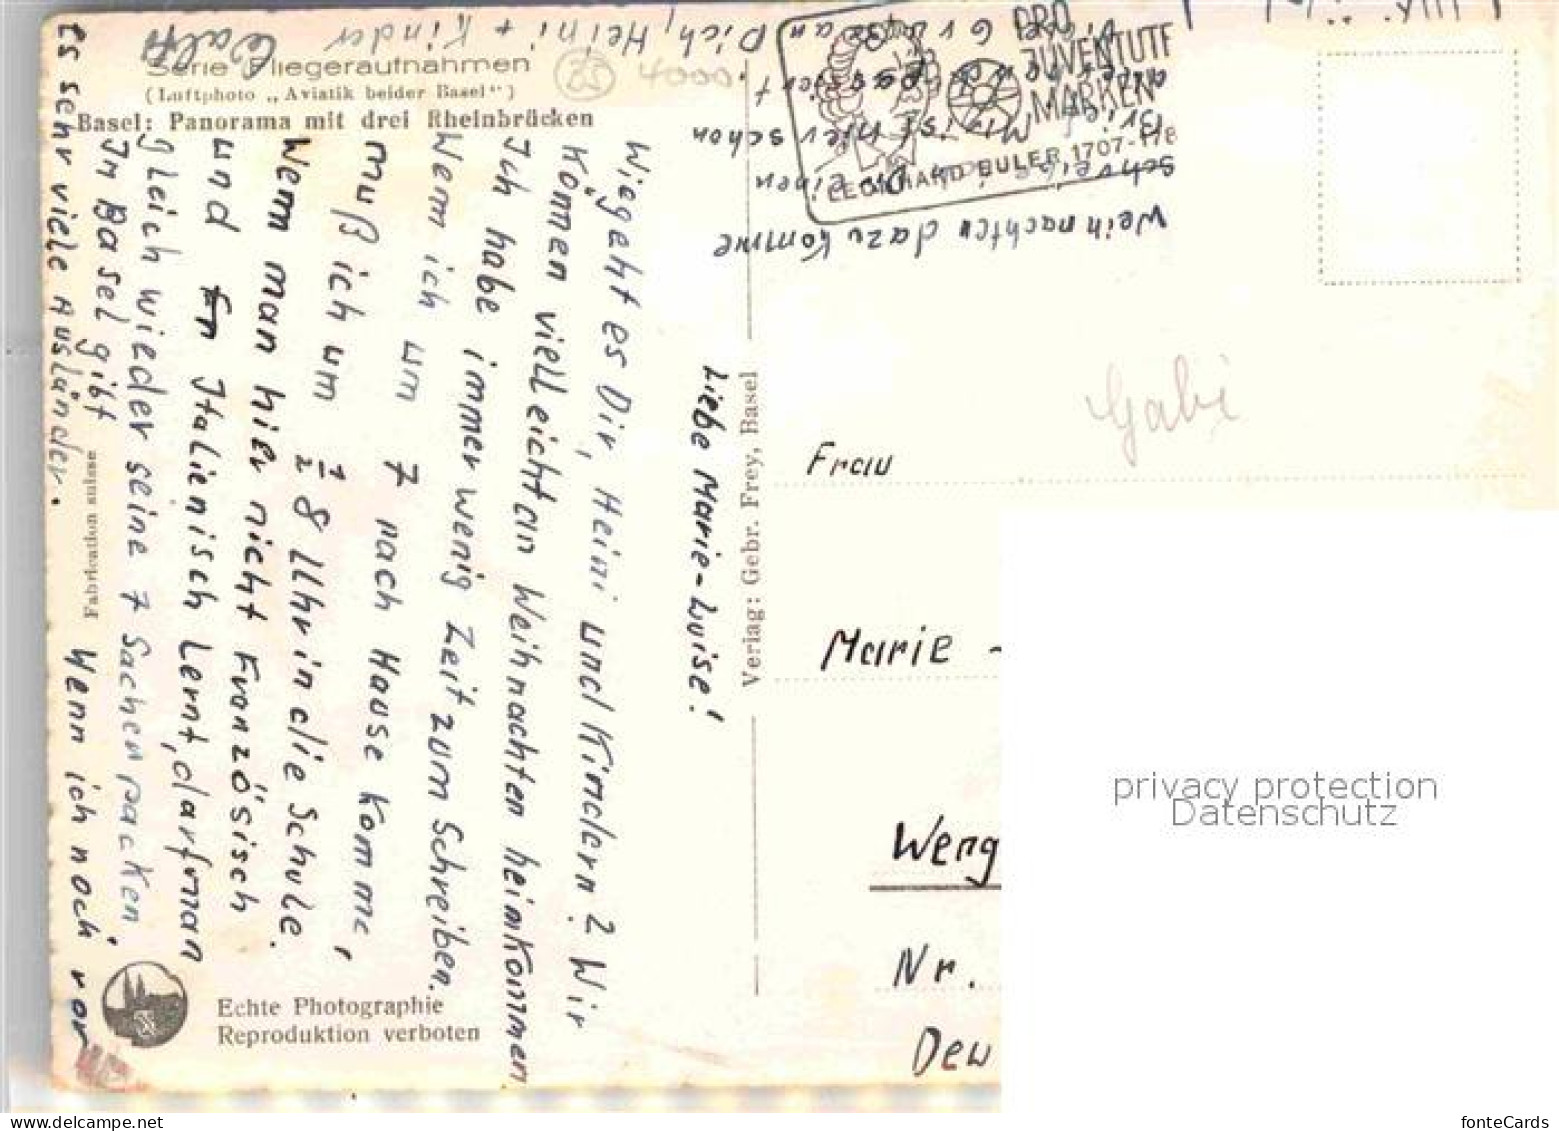 Serie Fliegeraufnahmen
(Luftphoto „Aviatik beider Basel“)
Basel: Panorama mit drei Rheinbrücken
25
4000
Liebe Marie-Luise!
Wie geht es Dir, Heini und Kindern? Wir
Können vielleicht an Weihnachten heimkommen
Ich habe immer wenig Zeit zum Schreiben.
Wenn ich um 7 nach Hause Komme,
muß ich um ½ 8 Uhr in die Schule.
Wenn man hier nicht Französisch
und Italienisch Lernt, darf man
gleich wieder seine 7 Sachen packen.
In Basel gibt
es sehr viele Ausländer.
Wenn ich noch vor
Weihnachten dazu Komme
schreibe ich Dir einen
Brief. Mir ist hier schon
passiert.
Grüße an Dich, Heini + Kinder
Fabrication suisse
Echte Photographie
Reproduktion verboten
Verlag: Gebr. Frey, Basel
PRO
JUVENTUTE
MARKEN
LEONHARD EULER 1707-178
Gabi
Frau
Marie -
Weng
Nr.
Deu
privacy protection
Datenschutz
www.delcampe.net
fonteCards